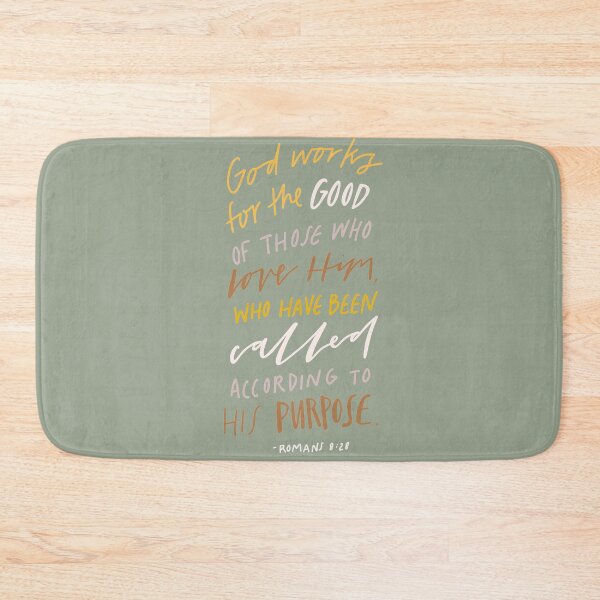 God works
for the GOOD
OF THOSE WHO
love Him,
WHO HAVE BEEN
called
ACCORDING TO
HIS PURPOSE.
-ROMANS 8:28